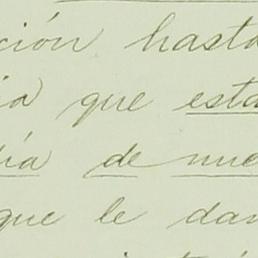 ción hasta
ia que esta
ia de nue
que le dan